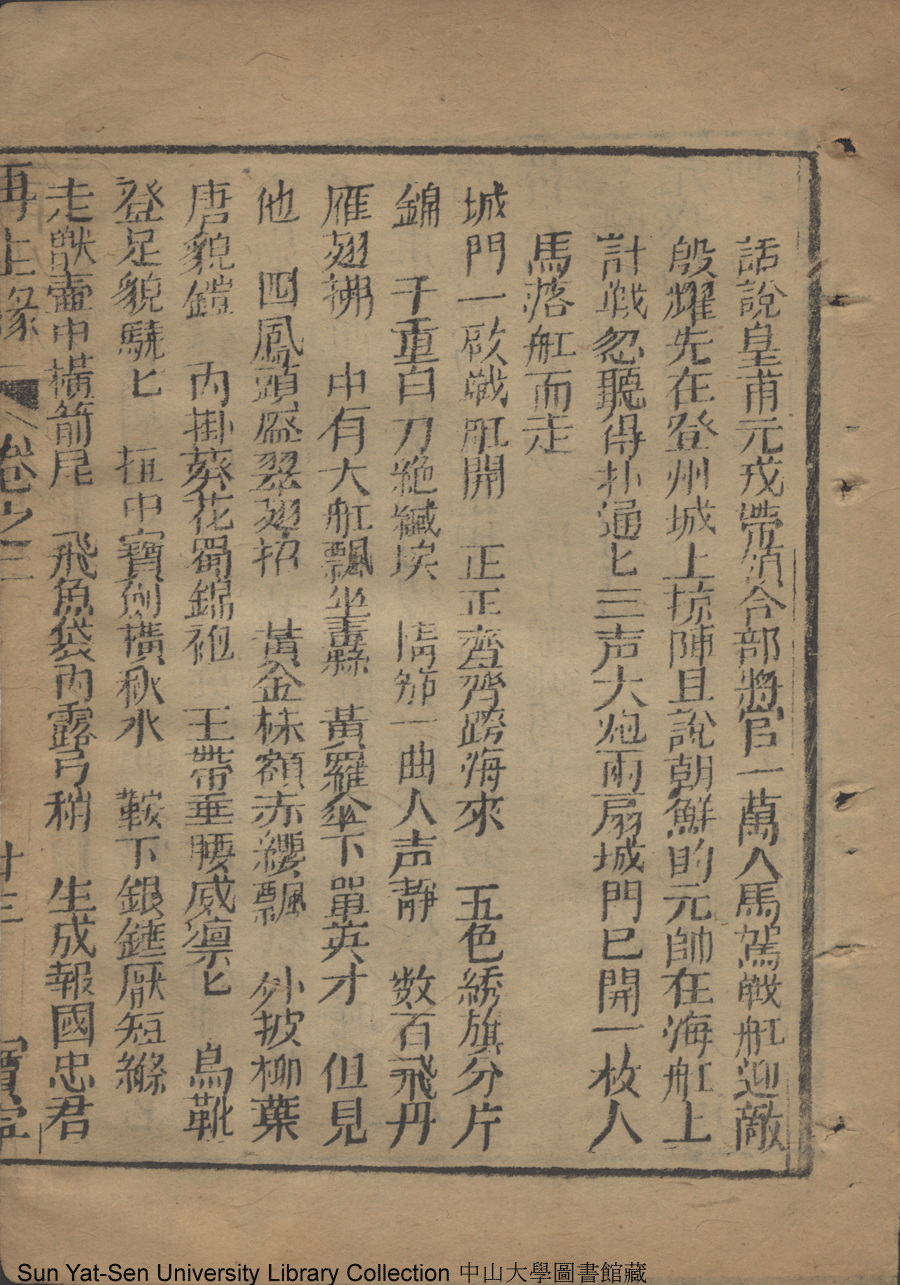 話說皇甫元戎帶領合部將官一萬人馬駕戰舡迎敵
殷耀先在登州城上掠陣且說朝鮮的元帥在海舡上
計战忽聽得扑通匕三声大炮兩扇城門已開一枚人
馬落舡而走
城門一啟戰舡開　正正齊齊跨海來　五色綉旗分片
錦　千重白刀絶緘埃　情笳一曲人声靜　数百飛丹
雁翅拂　中有大舡飄坐纛　黃羅傘下單英才　但見
他　四鳳頭盔翠翅招　黃金柇額赤纓飄　外披柳葉
唐貌鎧　內掛葵花蜀錦袍　王帶垂腰威凛匕　鳥靴
登足貌驍匕　扭中寶劍橫秋水　鞍下銀錘厭短絛
走獸壷中橫箭尾　飛魚袋內露弓稍　生成報國忠君
再生緣　卷之三　廿三　寶寧
Sun Yat-Sen University Library Collection 中山大學圖書館藏